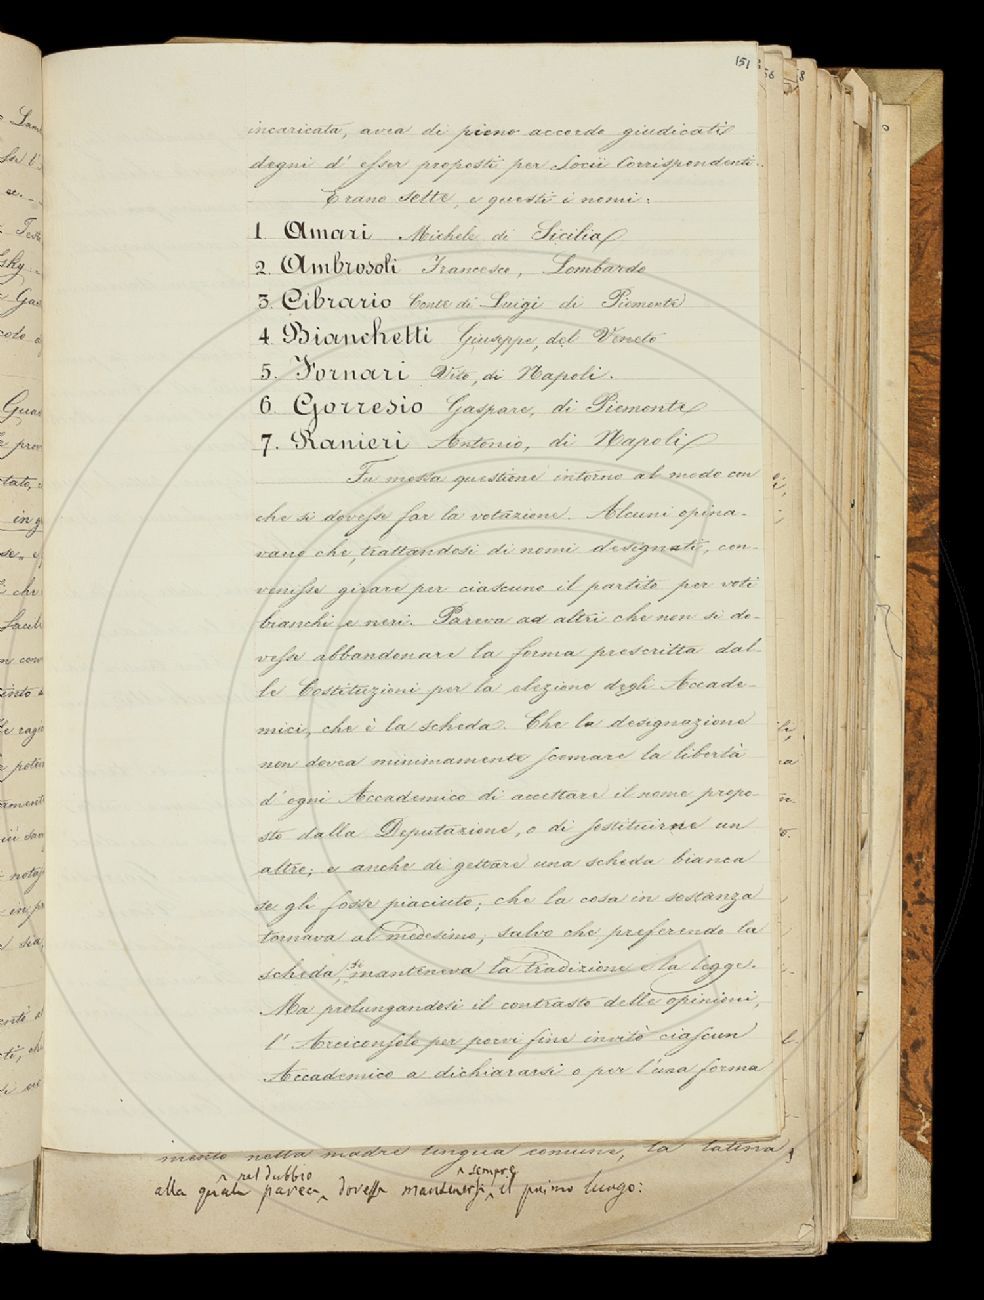 151
incaricata, avea di pieno accordo giudicati
degni d' esser proposti per Socii Corrispondenti.
Erano sette, e questi i nomi:
1. Amari Michele di Sicilia
2. Ambrosoli Francesco, Lombardo
3. Cibrario Conte di Luigi di Piemonte
4. Bianchetti Giuseppe, del Veneto
5. Fornari Vito, di Napoli.
6. Gorresio Gaspare, di Piemonte
7. Ranieri Antonio, di Napoli
Fu mossa questione intorno al modo con
che si dovesse far la votazione. Alcuni opina-
vano che, trattandosi di nomi designati, con-
venisse girare per ciascuno il partito per voti
bianchi e neri. Pareva ad altri che non si do-
vesse abbandonare la forma prescritta dal-
le Costituzioni per la elezione degli Accade-
mici, che è la scheda. Che la designazione
non dovea minimamente scemare la libertà
d' ogni Accademico di accettare il nome propo-
sto dalla Deputazione, o di sostituirne un
altro; e anche di gettare una scheda bianca
se gli fosse piaciuto; che la cosa in sostanza
tornava al medesimo, salvo che preferendo la
scheda, si manteneva la tradizione e la legge.
Ma prolungandosi il contrasto delle opinioni,
l' Arciconsolo per porvi fine invitò ciascun
Accademico a dichiararsi o per l'una forma
mento nella madre lingua comune, la latina,
nel dubbio sempre
alla quale parea dovesse mantenersi il primo luogo: